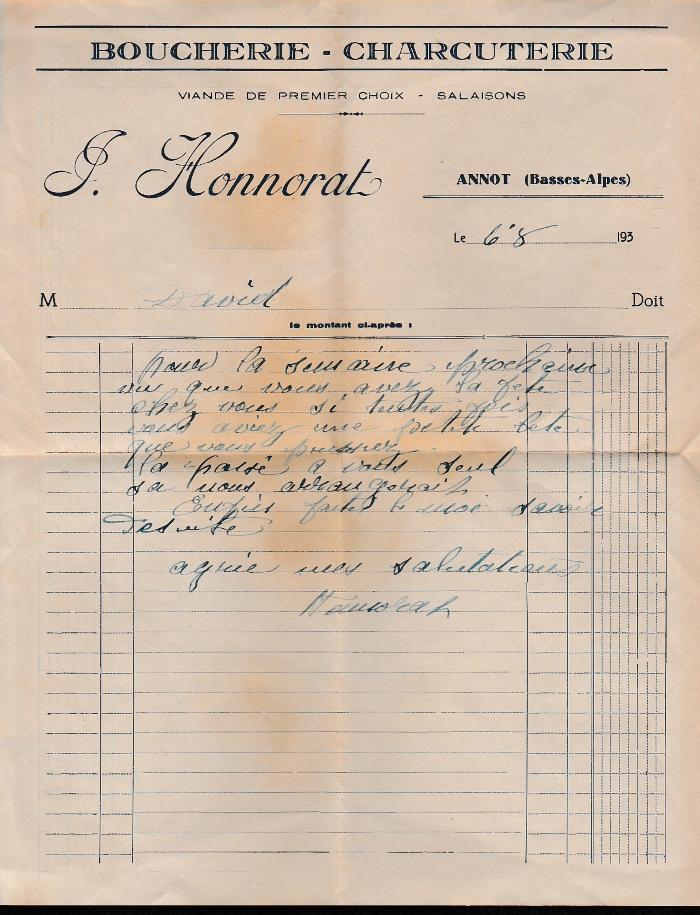 BOUCHERIE - CHARCUTERIE
VIANDE DE PREMIER CHOIX - SALAISONS
J. Honnorat
ANNOT (Basses-Alpes)
Le 6 8 193
M David Doit
le montant ci-après :
pour la semaine prochaine
vu que vous avez la fete
chez vous si toutes fois
vous aviez une petite bete
que vous puissiez
la passé a vous seul
sa nous arrangerait
Enfin faite le moi savoir
desuite
agrée mes salutations
Honnorat